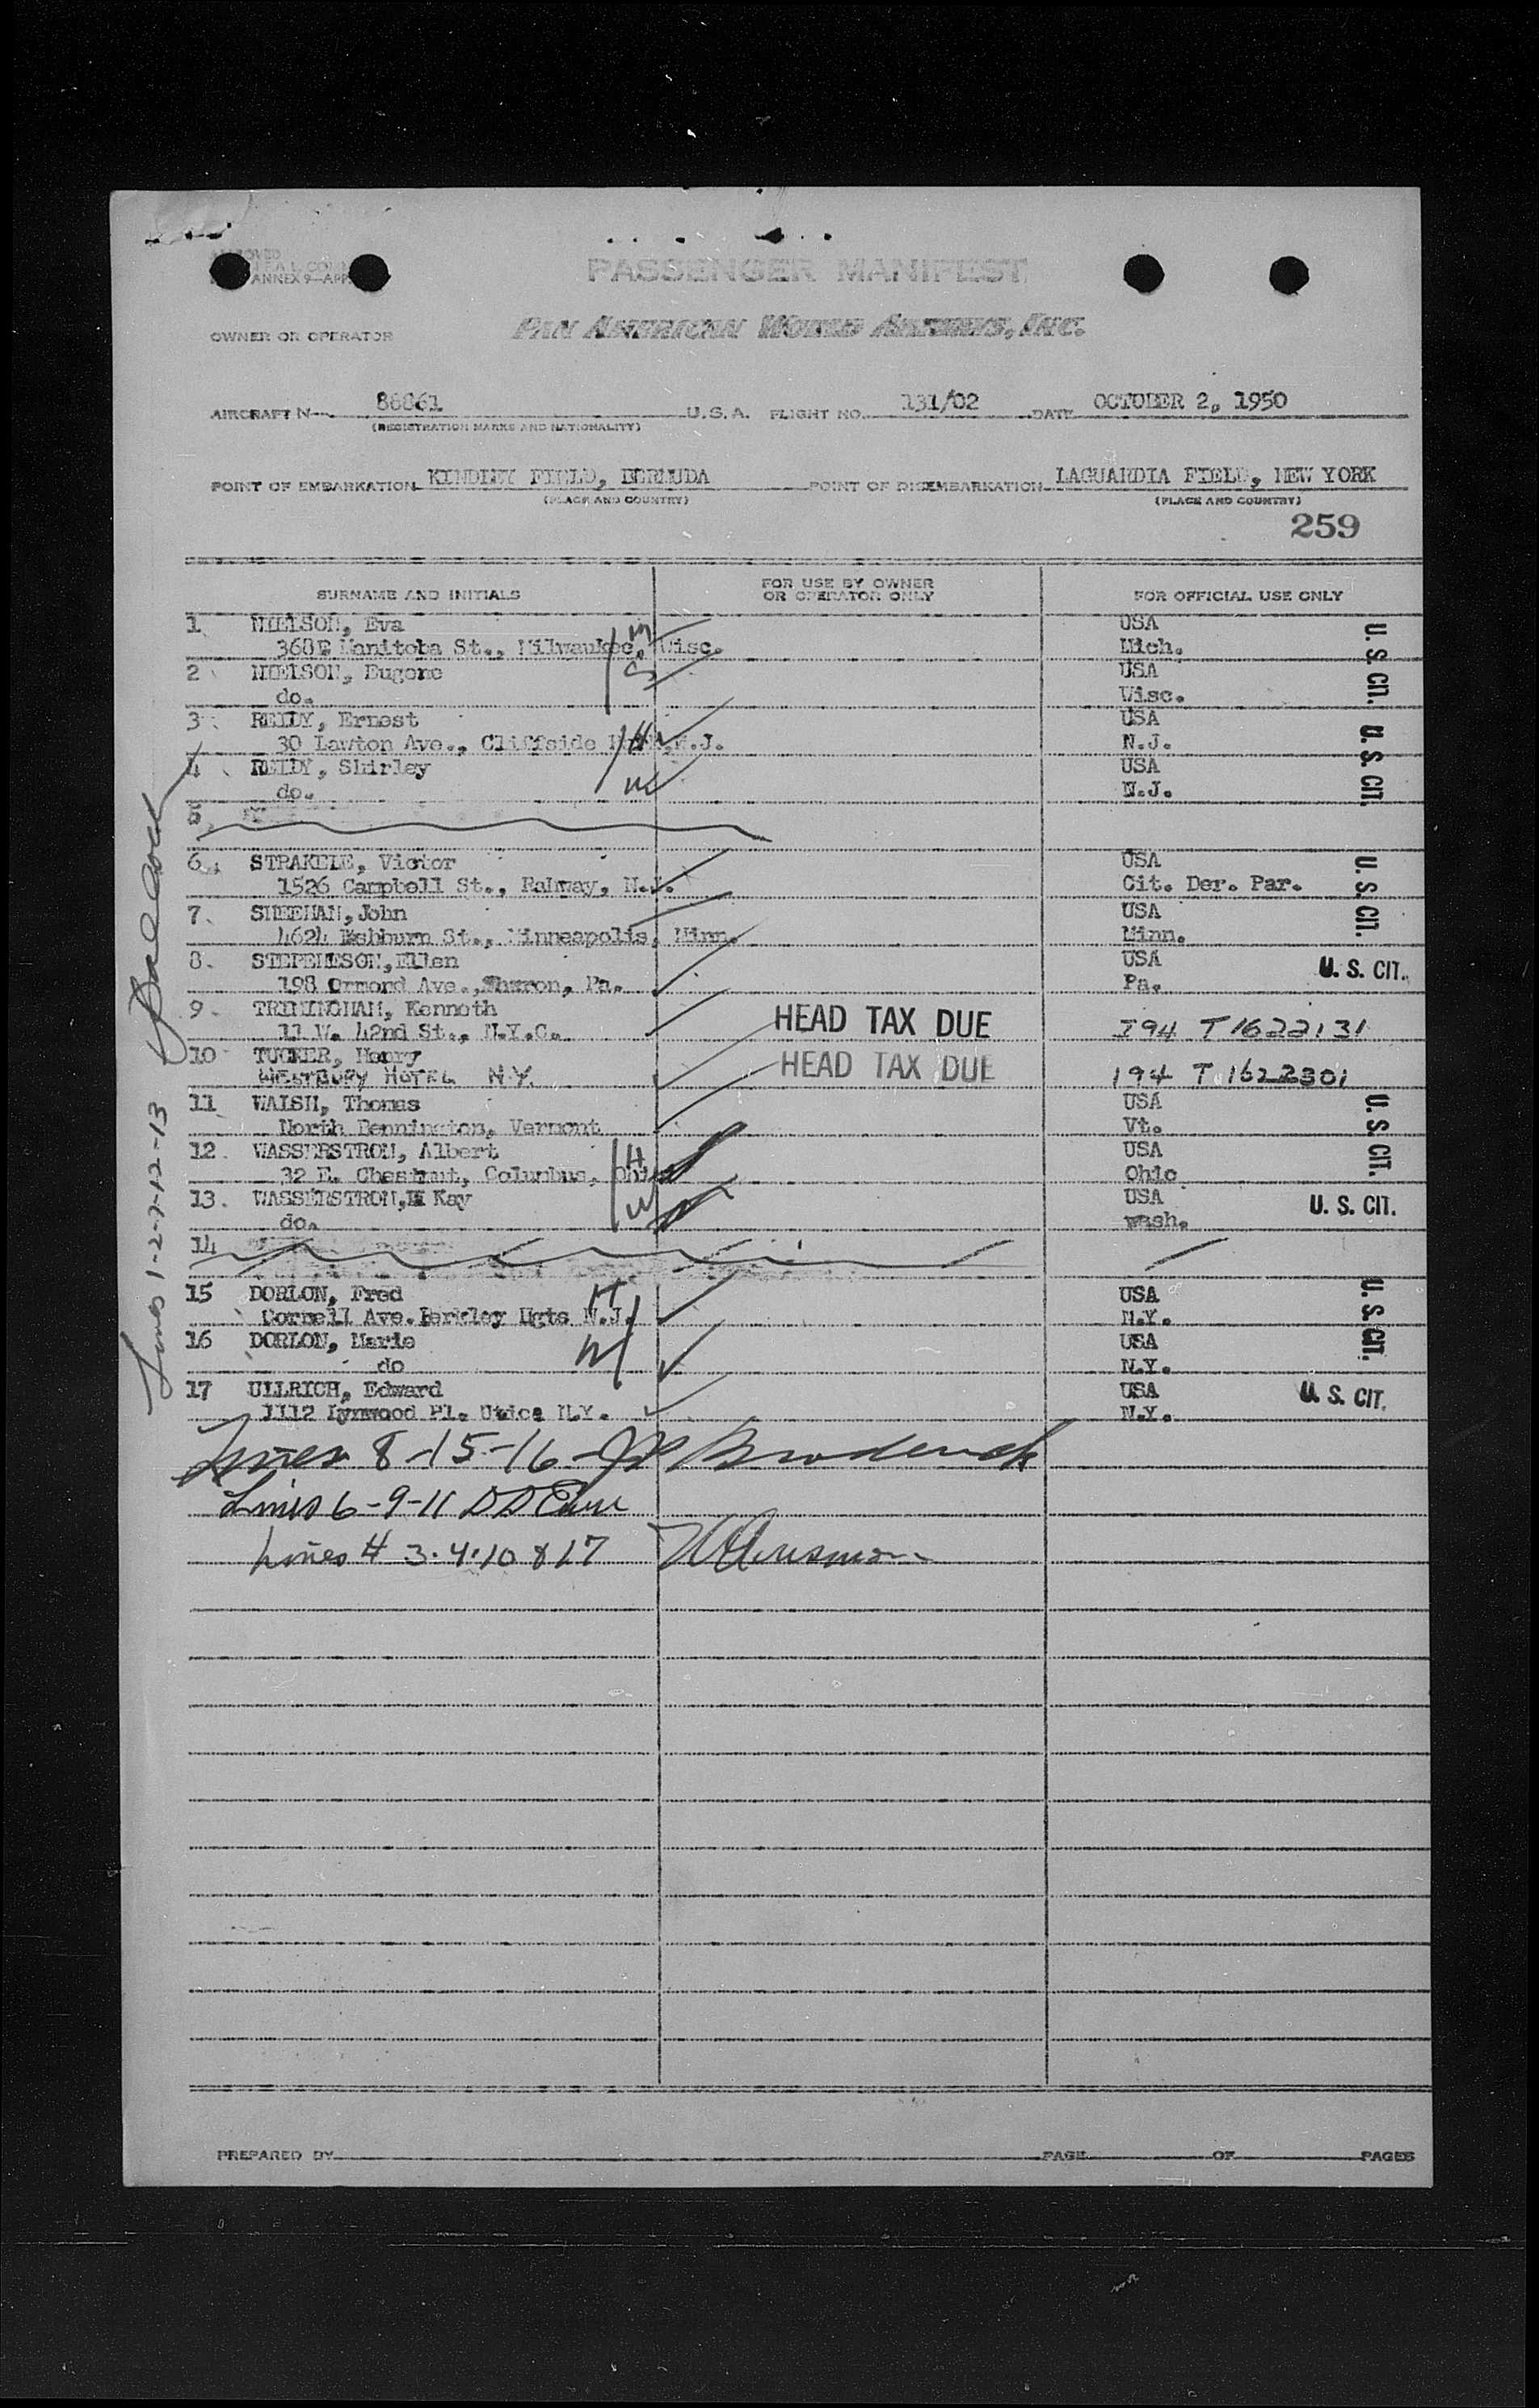 APPROVED
ANNEX 9-APP
PASSENGER MANIFEST
OWNER OR OPERATOR
PAN AMERICAN WORLD AIRWAYS, INC.
AIRCRAFT N 88861 U.S.A. FLIGHT NO. 131/02 DATE OCTOBER 2, 1950
(REGISTRATION MARKS AND NATIONALITY)
POINT OF EMBARKATION KINDLEY FIELD, BERMUDA POINT OF DISEMBARKATION LAGUARDIA FIELD, NEW YORK
(PLACE AND COUNTRY) (PLACE AND COUNTRY)
259
SURNAME AND INITIALS FOR USE BY OWNER OR OPERATOR ONLY FOR OFFICIAL USE ONLY
1 NIELSON, Eva USA
368 E Manitoba St., Milwaukee, Wisc. M Mich. U. S. CIT.
2 NIELSON, Eugene USA
do. S Wisc.
3 REIDY, Ernest USA
30 Lawton Ave., Cliffside Park, N.J. H N.J. U. S. CIT.
4 REIDY, Shirley USA
do. W N.J.
5
6 STRAKELE, Victor USA
1526 Campbell St., Rahway, N.J. Cit. Der. Par. U. S. CIT.
7 SHEEHAN, John USA
4624 Washburn St., Minneapolis, Minn. Minn.
8. STEPHENSON, Ellen USA U. S. CIT.
198 Ormond Ave., Sharon, Pa. Pa.
9 TRIMINGHAM, Kenneth HEAD TAX DUE
11 W. 42nd St., N.Y.C. I94 T1622131
10 TUCKER, Henry HEAD TAX DUE
WESTBURY HOTEL N.Y. 194 T 1622301
11 WALSH, Thomas USA
North Bennington, Vermont Vt. U. S. CIT.
12. WASSERSTROM, Albert USA
32 E. Chestnut, Columbus, Ohio H Ohio
13. WASSERSTROM, Kay USA U. S. CIT.
do. W Wash.
14
15 DORLON, Fred H USA
Cornell Ave. Berkley Hgts N.J. N.Y. U. S. CIT.
16 DORLON, Marie W USA
do N.Y.
17 ULLRICH, Edward USA U. S. CIT.
1112 Lynwood Pl. Utica N.Y. N.Y.
Lines 8-15-16 - Broderick
Lines 6-9-11
Lines # 3.4.10 & 17
Lines 1-2-7-12-13
PREPARED BY PAGE OF PAGES